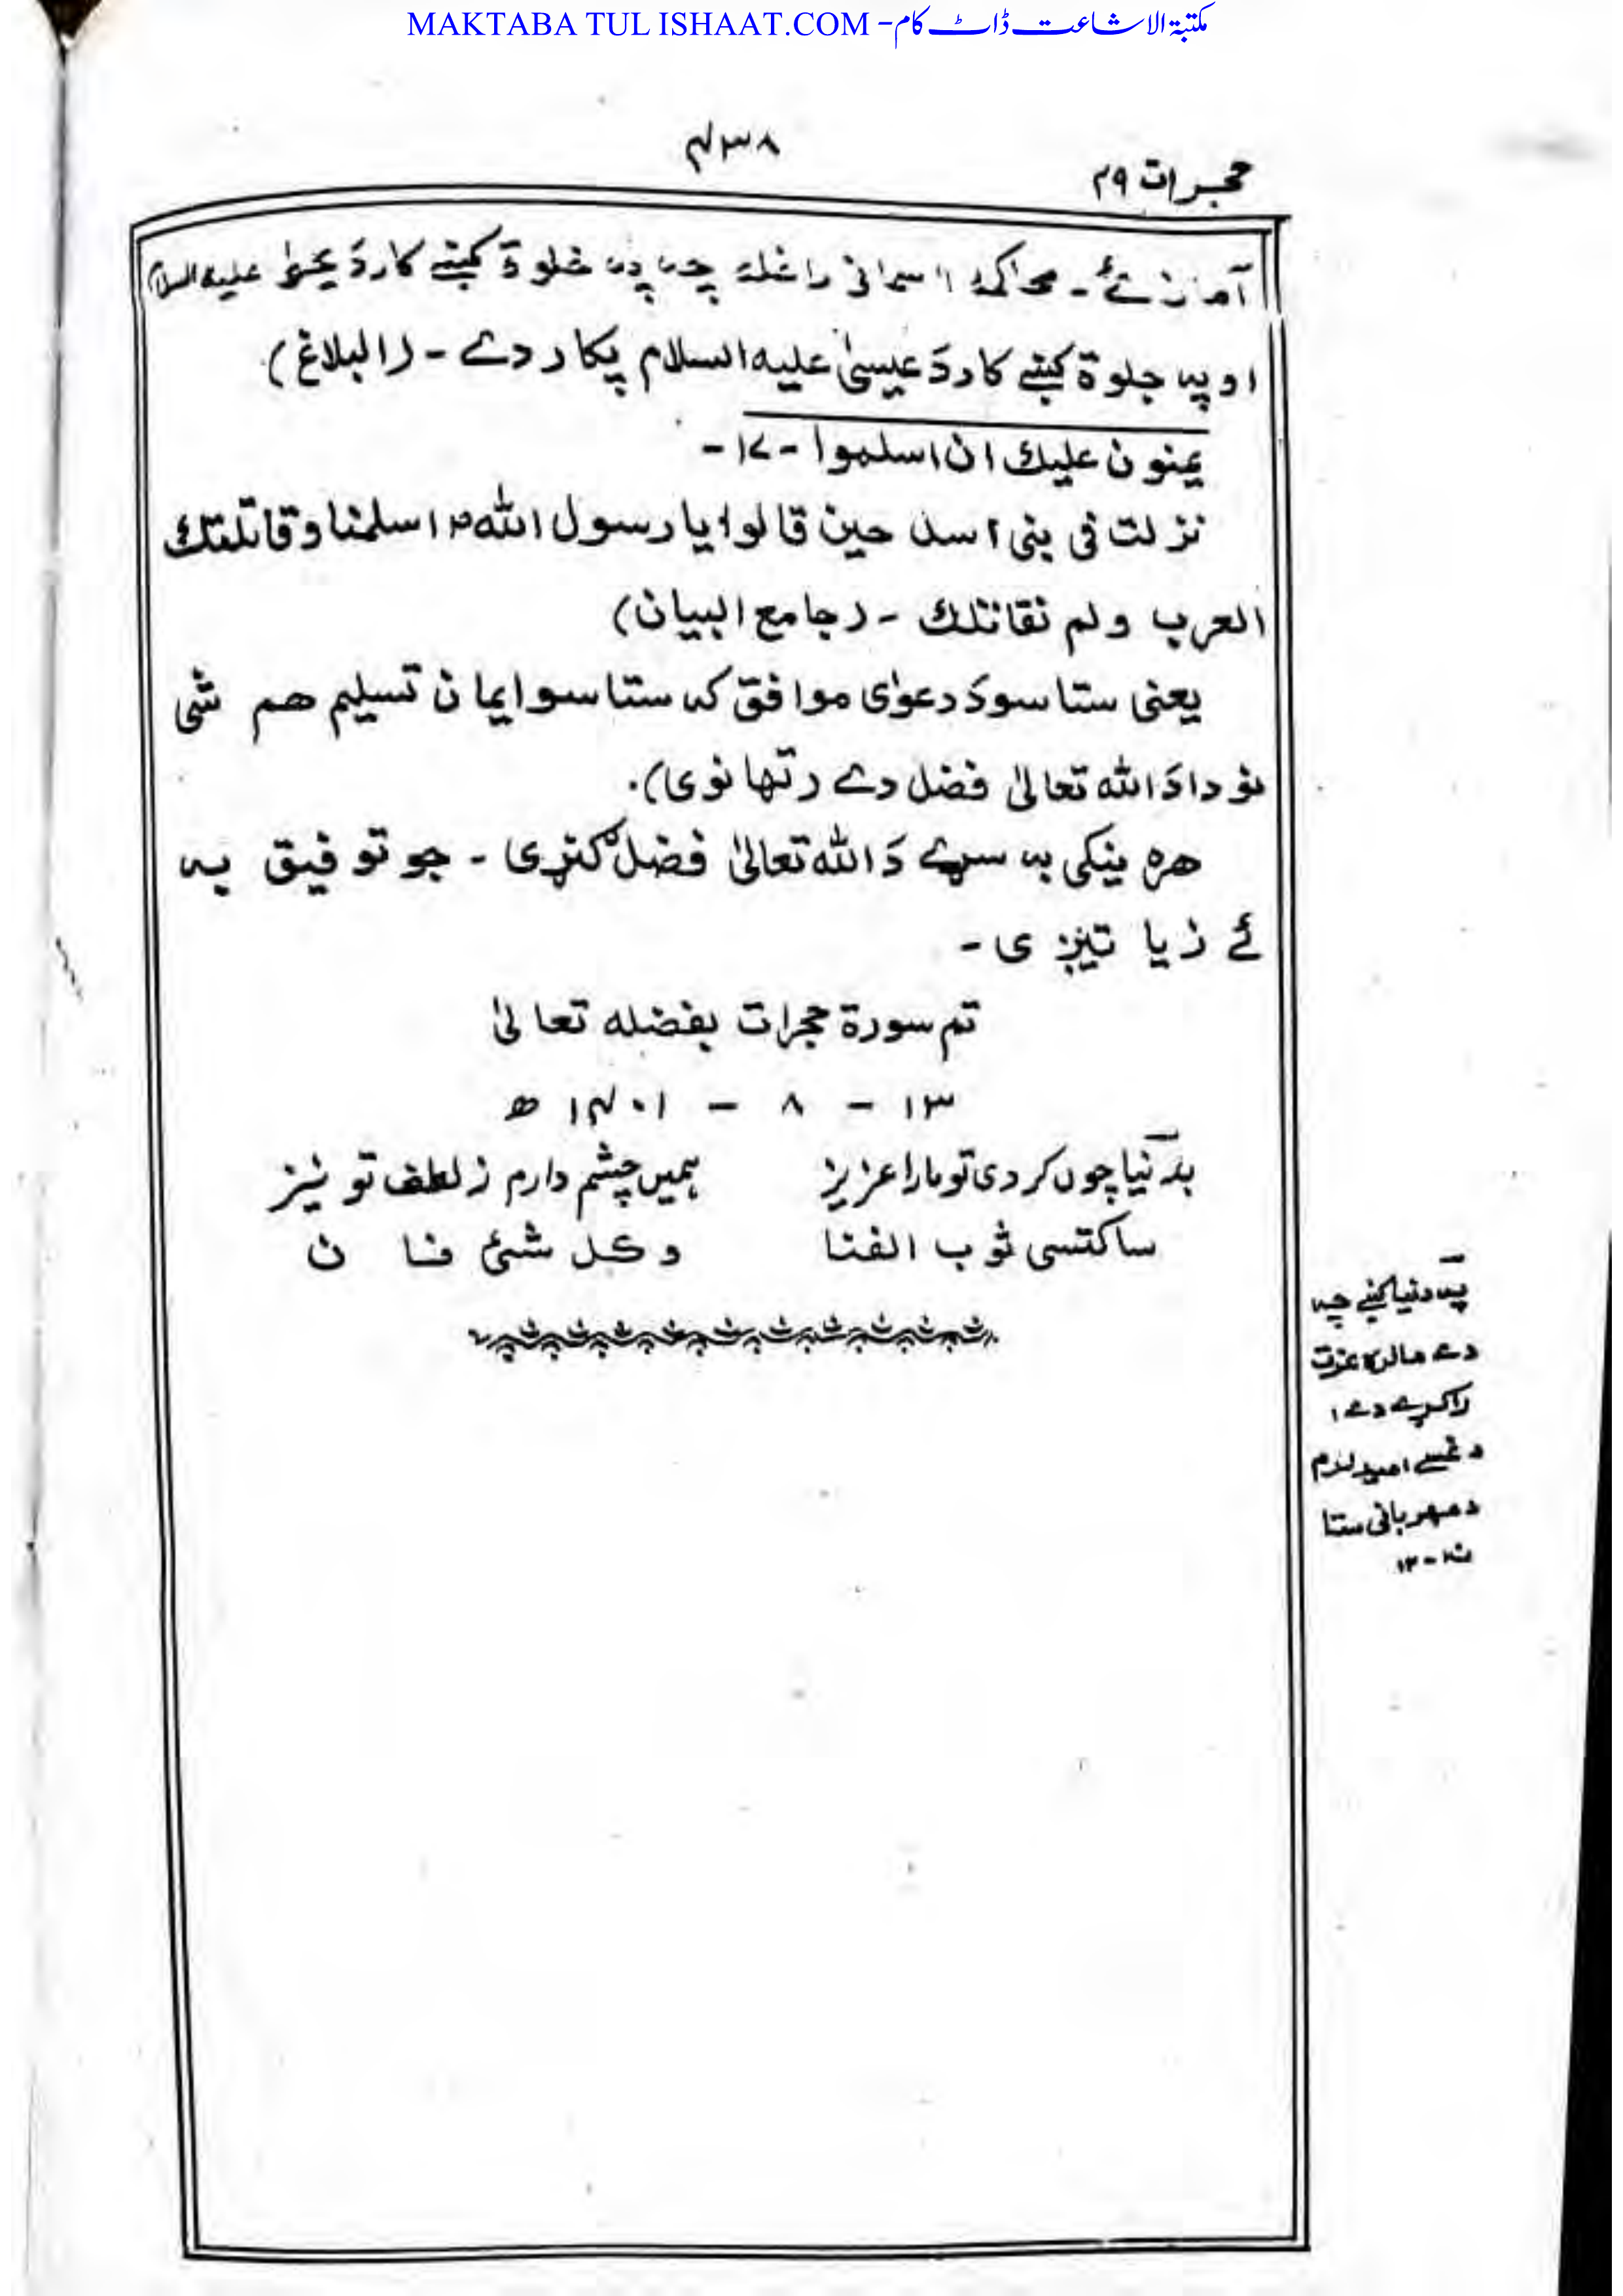 MAKTABA TUL ISHAAT.COM - مکتبۃ الاشاعت ڈاٹ کام
۴۳۸
حجرات ۲۹
آمد زئے ـ محاکمۀ اسمانی راغلۀ چہ پہ خلوۃ کښے کار دَ یحیٰی علیہ السلام
او پہ جلوۃ کښے کار دَ عیسیٰ علیہ السلام پکار دے ـ (البلاغ)
یمنون علیك ان اسلموا - ۱۷ -
نزلت فی بنی اسد حین قالوا یا رسول اللہ ﷺ اسلمنا وقاتلتك
العرب ولم نقاتلك - (جامع البیان)
یعنی ستاسو دَ دعوٰی موافق کہ ستاسو ایمان تسلیم ھم شی
نو دا دَ اللہ تعالیٰ فضل دے (تھانوی).
ھرہ نیکی بہ سړے دَ اللہ تعالیٰ فضل ګنړی - جو توفیق بہ
ئے زیا تیږی -
تم سورۃ حجرات بفضلہ تعالیٰ
۱۳ - ۸ - ۱۴۰۱ ھ
بدنیا چوں کردی تو مارا عزیز ہمیں چشم دارم ز لطف تو نیز
ساکتسی ثوب الفنا وکل شئ فا ن
پہ دنیا کښے چہ
دے مالرہ عزت
راکړے دے ۱
دغسے امید لرم
د مھربانی ستا
نہ - ۱۲